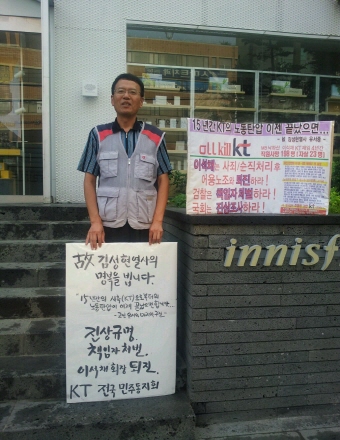 15년간 KT의 노동탄압 이젠 끝났으면...
- 故 김성현열사 유서중
all kill kt
이석채는 사죄/순직처리 후
어용노조와 퇴진하라!
검찰은 책임자 처벌하라!
국회는 진상조사하라!
innisf
故 김성현열사의
명복을 빕니다.
15년간의 사측(KT)으로부터의
노동탄압이 이제 끝났으면 합니다.
진상규명.
책임자 처벌.
이석채 회장 퇴진.
KT 전국 민주동지회